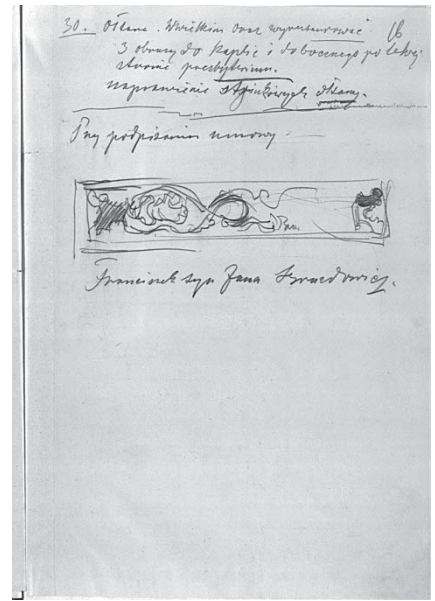 30. Ołtarz. Wielkim oraz wyrestaurować 16
3 obrazy do kaplic i do bocznego po lewej
stronie presbyterium.
naprawienie ołtarzy.
Przy podpisaniu umowy.
Franciszek syn Jana